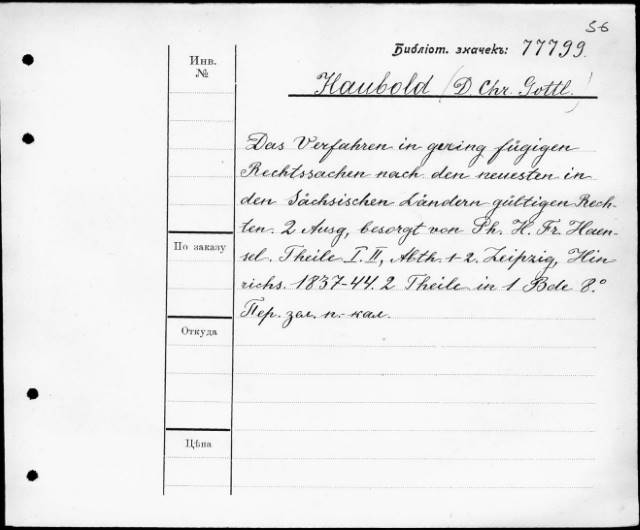 56
Библіот. значекъ: 77799.
Инв.
№
Haubold (D. Chr. Gottl.)
Das Verfahren in gering fügigen
Rechtssachen nach den neuesten in
den Sächsischen Ländern gültigen Rech-
ten. 2 Ausg, besorgt von Ph. H. Fr. Haen-
По заказу
sel. Theile I. II, Abth. 1-2. Leipzig, Hin
richs. 1837-44. 2 Theile in 1 Bde 8.°
Пер. зел. п.-кал.
Откуда
Цѣна